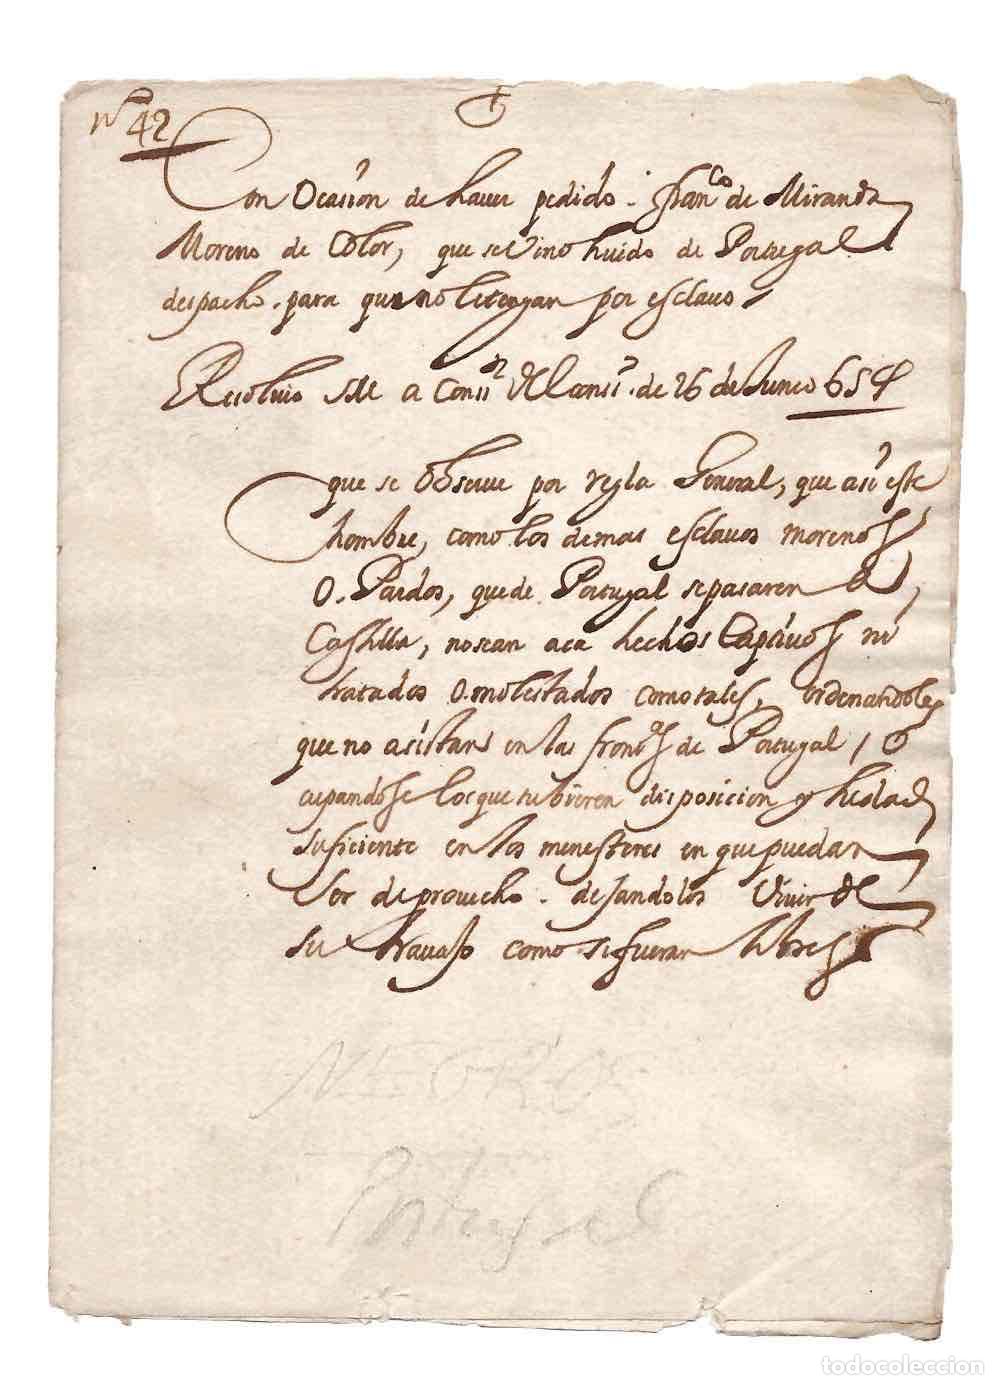 nº 42
Con Ocasion de haver pedido. Franco de Miranda
Moreno de Color, que se Vino huido de Portugal
despacho. para que no le tengan por esclavo
Resolvio SM a Conss.n del Cons.o de 26 de Junio 654
que se observe por regla General, que asi este
hombre, como los demas esclavos morenos
O. Pardos, que de Portugal se pasaren a
Castilla, no sean aca hechos Captivos ni
tratados o molestados como tales, ordenandoles
que no asistan en las front.as de Portugal, o
cupandose los que tubieren disposicion y hedad
suficiente en los menesteres en que puedan
ser de provecho. dejandolos Vivir de
su travajo como si fueran libres
NEGROS
Portugal
todocoleccion